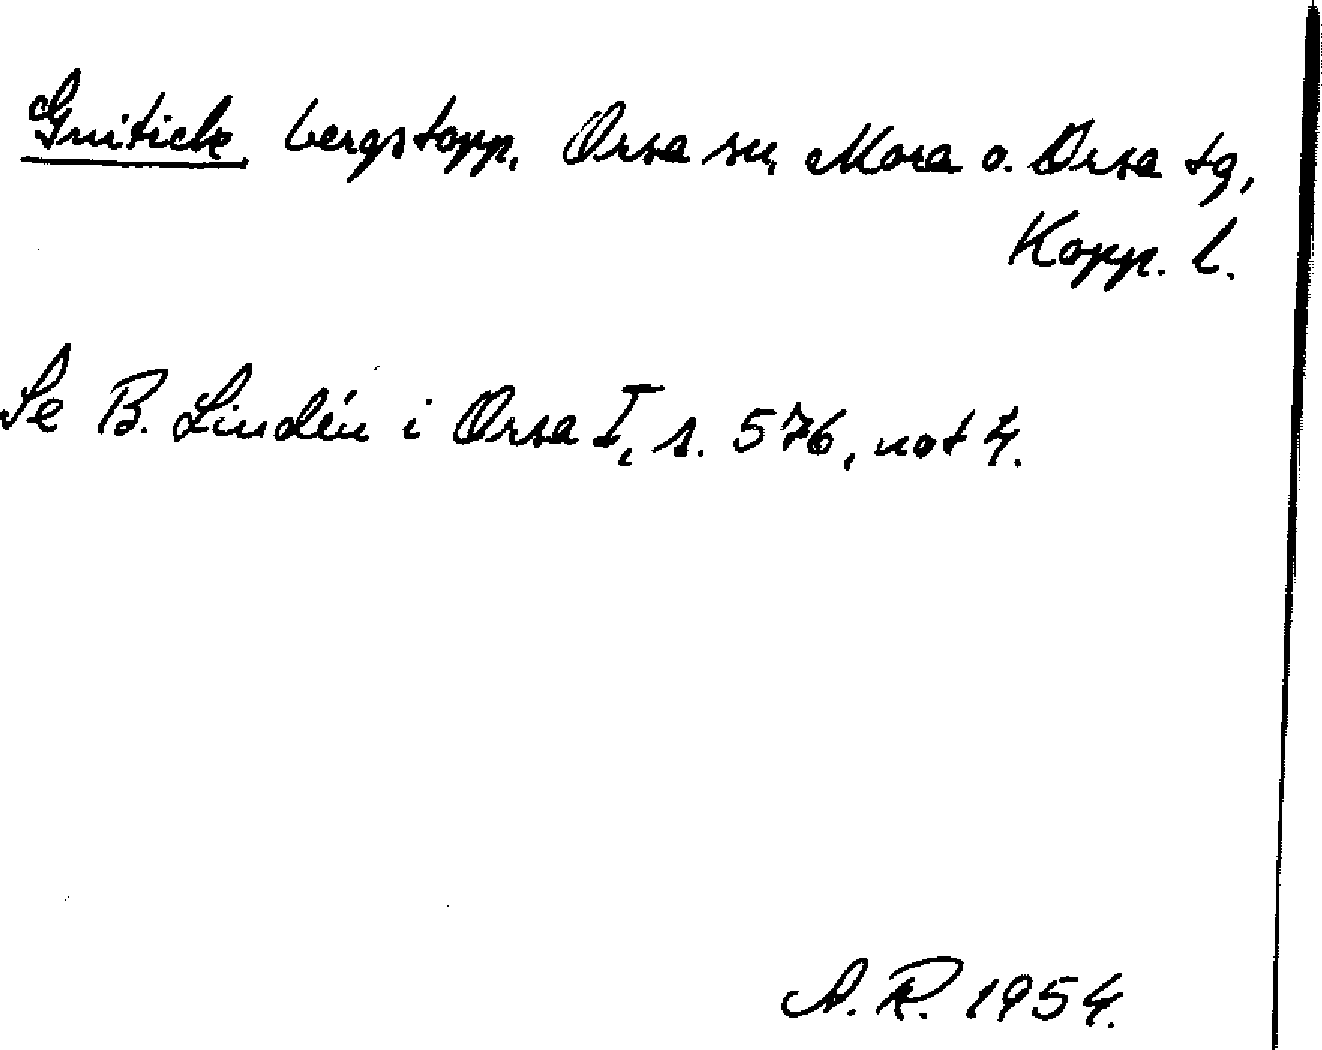 Gnitick, bergstopp, Orsa sn, Mora o. Orsa tg,
Kopp. l.
Se B. Lindén i Orsa I, s. 576, not 4.
A.R. 1954.